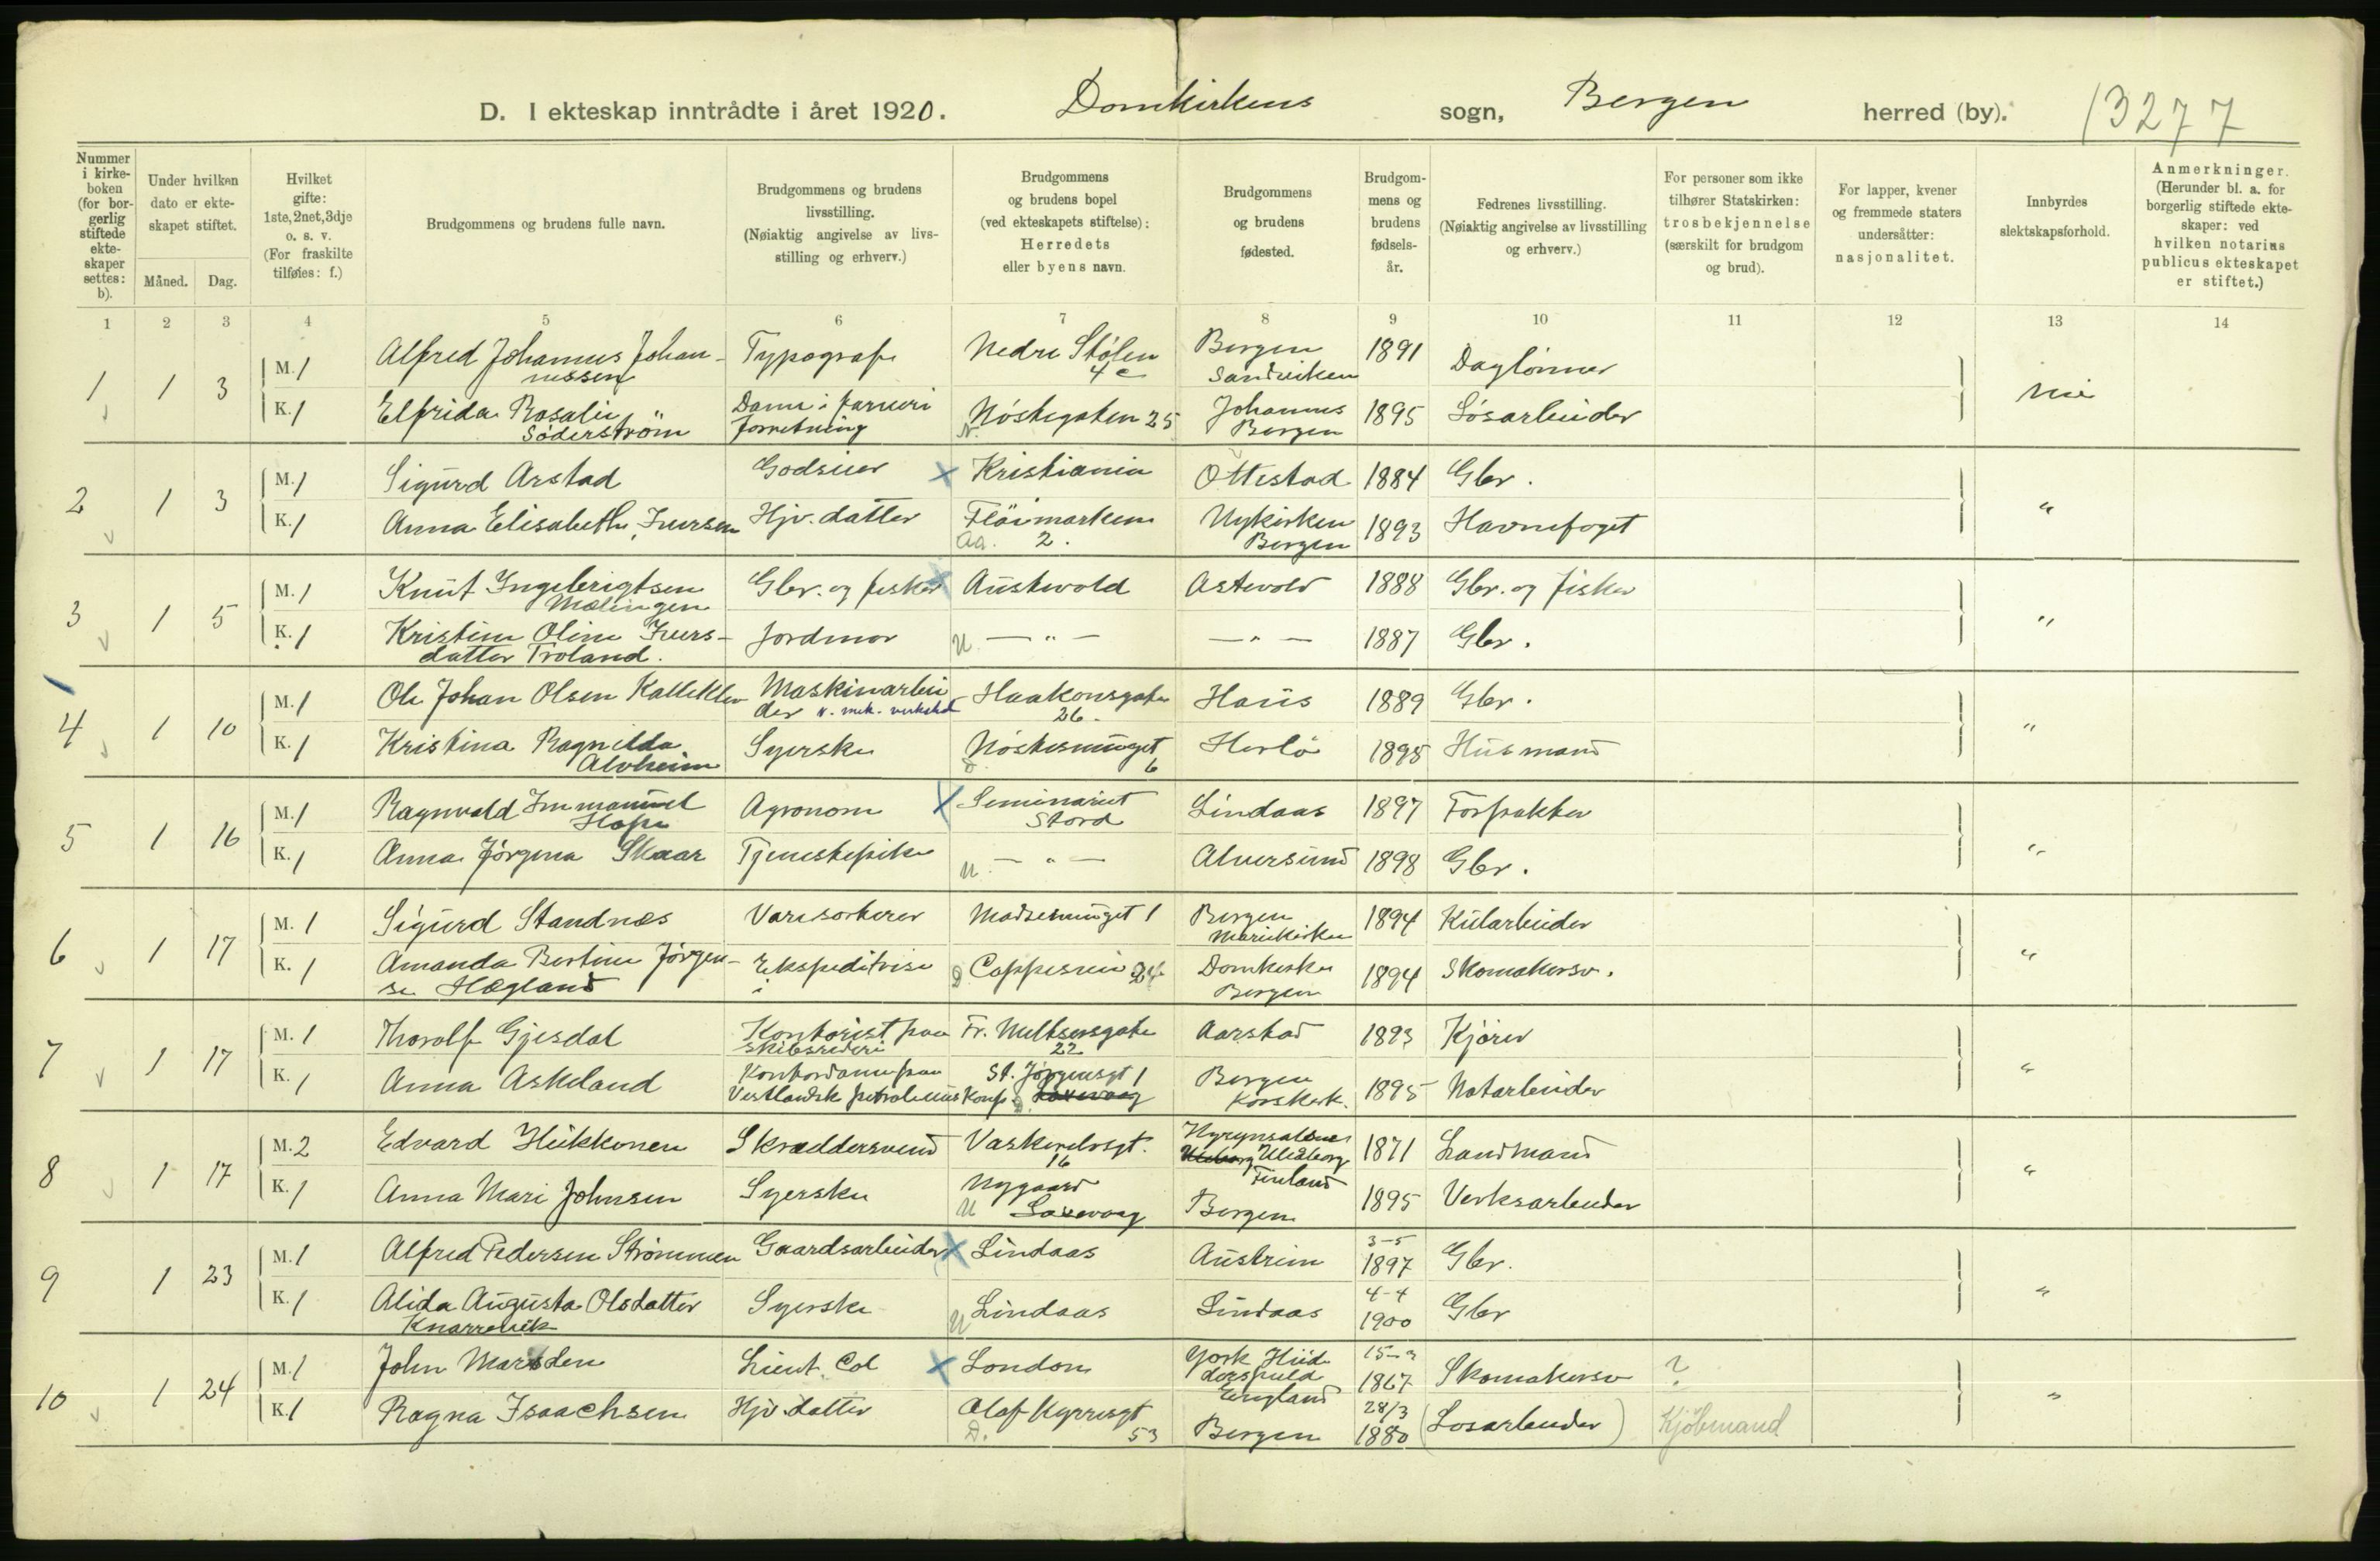 D. I ekteskap inntrådte i året 1920. Domkirkens sogn, Bergen herred (by). 13277
Nummer i kirkeboken (for borgerlig stiftede ekteskaper settes: b).
Under hvilken dato er ekteskapet stiftet.
Måned. Dag.
Hvilket gifte: 1ste, 2net, 3dje o. s. v. (For fraskilte tilføies: f.)
Brudgommens og brudens fulle navn.
Brudgommens og brudens livsstilling. (Nøiaktig angivelse av livsstilling og erhverv.)
Brudgommens og brudens bopel (ved ekteskapets stiftelse): Herredets eller byens navn.
Brudgommens og brudens fødested.
Brudgommens og brudens fødselsår.
Fedrenes livsstilling. (Nøiaktig angivelse av livsstilling og erhverv.)
For personer som ikke tilhører Statskirken: trosbekjennelse (særskilt for brudgom og brud).
For lapper, kvener og fremmede staters undersåtter: nasjonalitet.
Innbyrdes slektskapsforhold.
Anmerkninger. (Herunder bl. a. for borgerlig stiftede ekteskaper: ved hvilken notarius publicus ekteskapet er stiftet.)
1 2 3 4 5 6 7 8 9 10 11 12 13 14
1 1 3 M. 1 Alfred Johannes Johannessen Typografi Nedre Stølen 4c Bergen Sandviken 1891 Daglønner nei
K. 1 Elfrida Rosalie Söderström Dame i farveriforretning Nøstegaten 25 Johannes Bergen 1895 Løsarbeider
2 1 3 M. 1 Sigurd Arstad Godseier x Kristiania Ottestad 1884 Gbr. "
K. 1 Anna Elisabeth Iversen Hjv. datter Fløimarken Aa. 2. Nykirken Bergen 1893 Havnefoget
3 1 5 M. 1 Knut Ingebrigtsen Mælingen Gbr. og fisker x Austevold Astevold 1888 Gbr. og fisker "
K. 1 Kristine Oline Iversdatter Troland. Jordmor U. — " — — " — 1887 Gbr.
4 1 10 M. 1 Ole Johan Olsen Kalleklev Maskinarbeider v. mek. verksted Haakonsgaten 26. Haus 1889 Gbr. "
K. 1 Kristina Ragnilda Alvheim Syerske Nøstesmuget D. 6 Herlø 1895 Husmand
5 1 16 M. 1 Ragnvald Immanuel Hope Agronom x Seminariet Stord Lindaas 1897 Forpakter "
K. 1 Anna Jørgina Skaar Tjenestepike U. — " — Alversund 1898 Gbr.
6 1 17 M. 1 Sigurd Standnæs Varesorterer Madsesmuget 1 Bergen Mariekirken 1894 Kularbeider "
K. 1 Amanda Bertine Jørgense Hægland Ekspeditrise D Coppesmei 24 Domkirke Bergen 1894 Skomakersv.
7 1 17 M. 1 Thorolf Gjesdal Kontorist paa skibsrederi Fr. Meltzersgate 22 Aarstad 1893 Kjører "
K. 1 Anna Askeland Kontordame paa Vestlandske petroleums Komp. St. Jørgensgt 1 Laxevaag Bergen Korskirk. 1895 Notarbeider
8 1 17 M. 2 Edvard Heikkonen Skræddersvend Vaskerelvsgt. 16 Hyrynsalmi Uleåborg Finland 1871 Landmand "
K. 1 Anna Mari Johnsen Syerske Nygaard U Laxevaag Bergen 1895 Verksarbeider
9 1 23 M. 1 Alfred Pedersen Strømmen Gaardsarbeider x Lindaas Austrim 3-5 1897 Gbr. "
K. 1 Alida Augusta Olsdatter Knarrevik Syerske U Lindaas Lindaas 4-4 1900 Gbr
10 1 24 M. 1 John Marsden Lieut. Col x London York Huddersfield England 1867 Skomakersv ? "
K. 1 Ragna Isaachsen Hjv. datter Olaf Kyrresgt D. 53 Bergen 28/3 1880 (Losarbeider) Kjøbmand